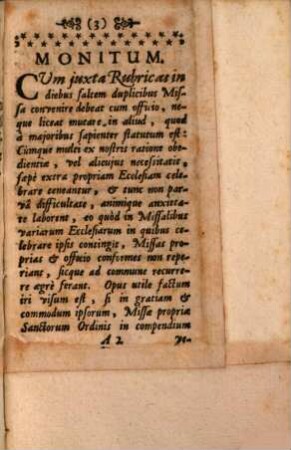 (3)
MONITUM.
CUm juxta Rubricas in
diebus saltem duplicibus Mis-
sa convenire debeat cum officio, ne-
que liceat mutare in aliud, quod
à majoribus sapienter statutum est:
Cùmque multi ex nostris ratione obe-
dientiæ, vel alicujus necessitatis,
sæpè extra propriam Ecclesiam cele-
brare ceneantur, & tunc non par-
vâ difficultate, animique anxieta-
te laborent, eo quòd in Missalibus
variarum Ecclesiarum in quibus ce-
lebrare ipsis contingit, Missas pro-
prias & officio conformes non repe-
riant, sicque ad commune recurre-
re ægrè ferant. Opus utile factum
iri visum est, si in gratiam &
commodum ipsorum, Missæ propriæ
Sanctorum Ordinis in compendium
A 2